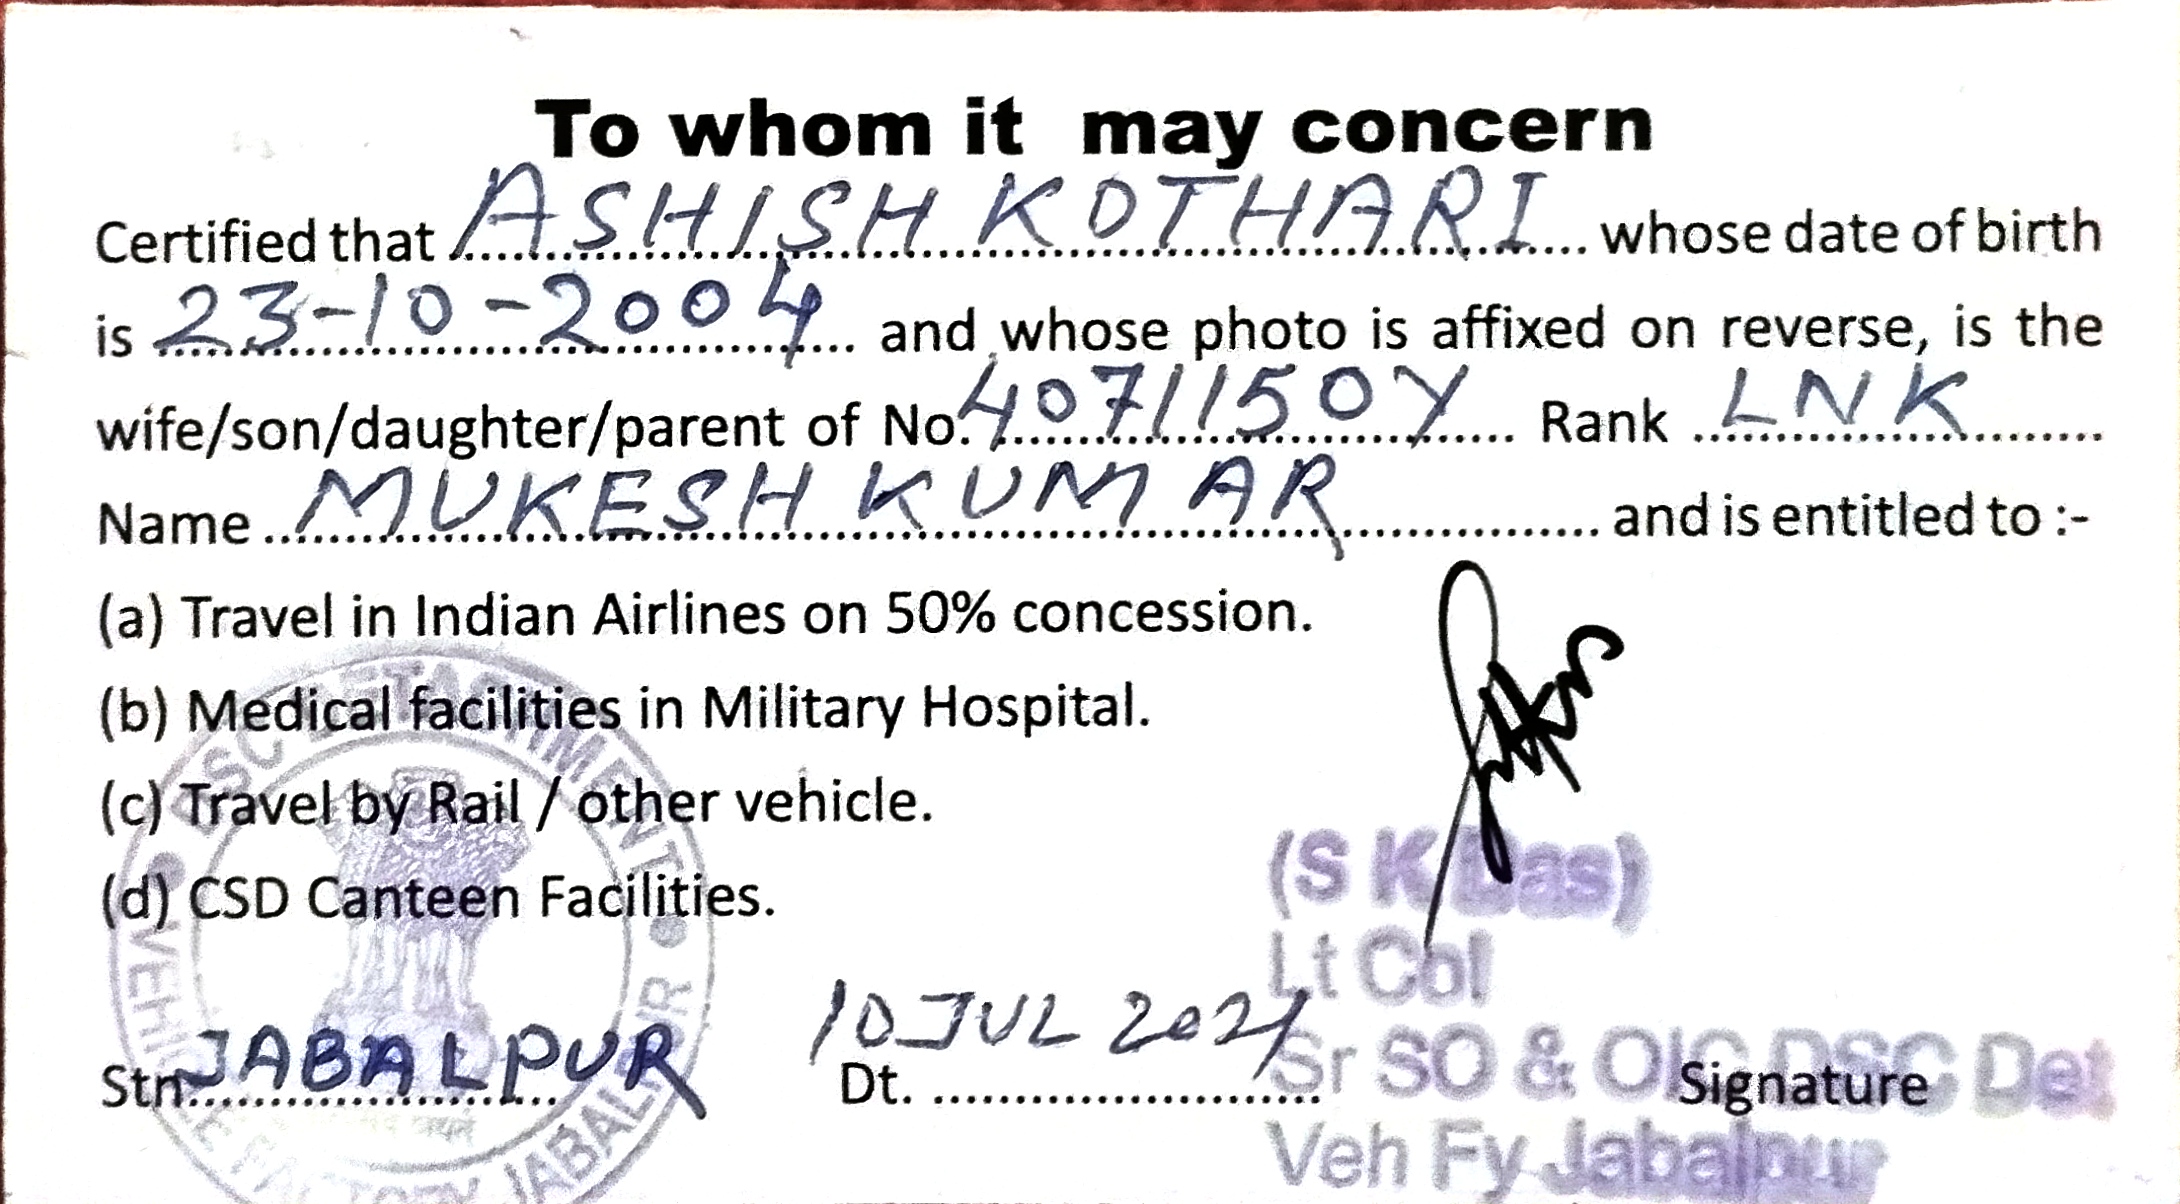 To whom it may concern
Certified that ASHISH KOTHARI whose date of birth
is 23-10-2004 and whose photo is affixed on reverse, is the
wife/son/daughter/parent of No. 4071150Y Rank LNK
Name MUKESH KUMAR and is entitled to :-
(a) Travel in Indian Airlines on 50% concession.
(b) Medical facilities in Military Hospital.
(c) Travel by Rail / other vehicle.
(d) CSD Canteen Facilities.
DSC DETACHMENT
VEHICLE FACTORY JABALPUR
(S K Das)
Lt Col
Sr SO & OIC DSC Det
Veh Fy Jabalpur
Stn JABALPUR Dt. 10 JUL 2021 Signature